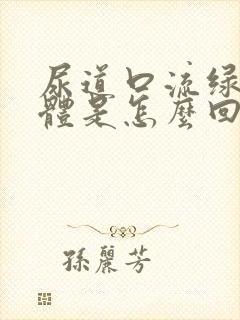 尿道口流绿
體是怎麼回
孫麗芳